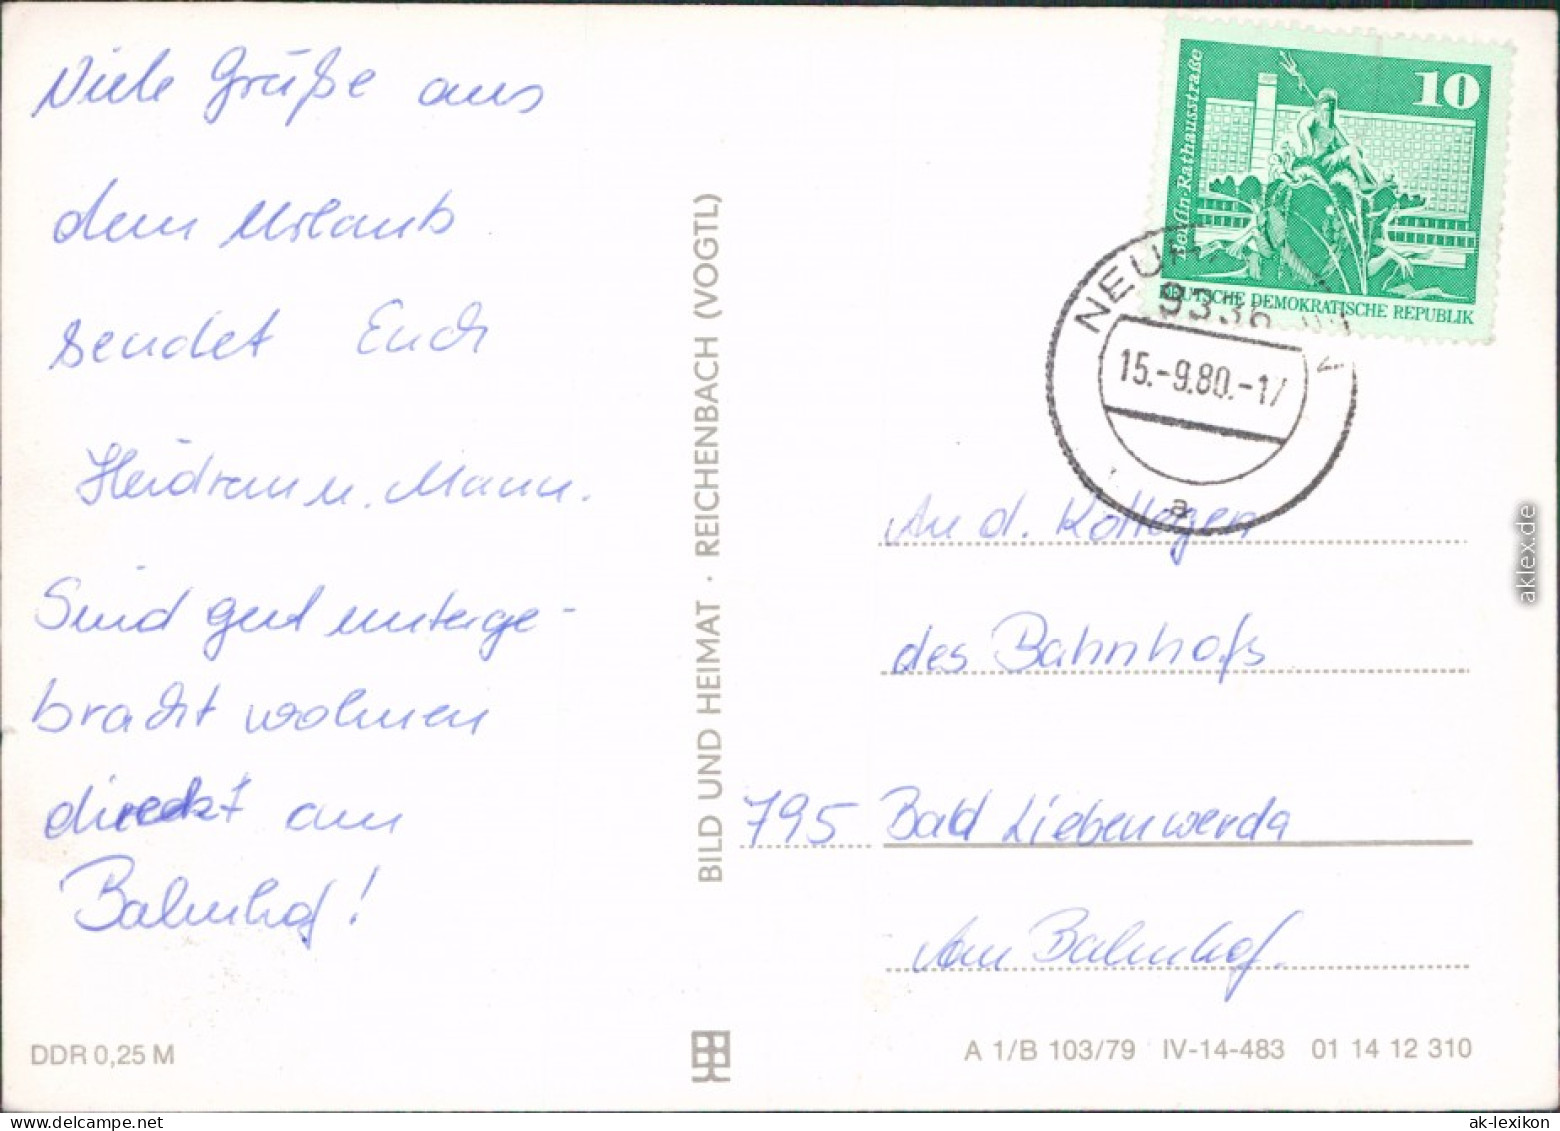 Viele Grüße aus
dem Urlaub
sendet Euch
Heidrun u. Mann.
Sind gut unterge-
bracht wohnen
direkt am
Bahnhof!
DDR 0,25 M
BILD UND HEIMAT · REICHENBACH (VOGTL)
10
Berlin-Rathausstraße
DEUTSCHE DEMOKRATISCHE REPUBLIK
9336
15.-9.80.-17
a
An d. Kollegen
des Bahnhofs
795 Bad Liebenwerda
Am Bahnhof.
A 1/B 103/79 IV-14-483 01 14 12 310
aklex.de
ak-lexikon